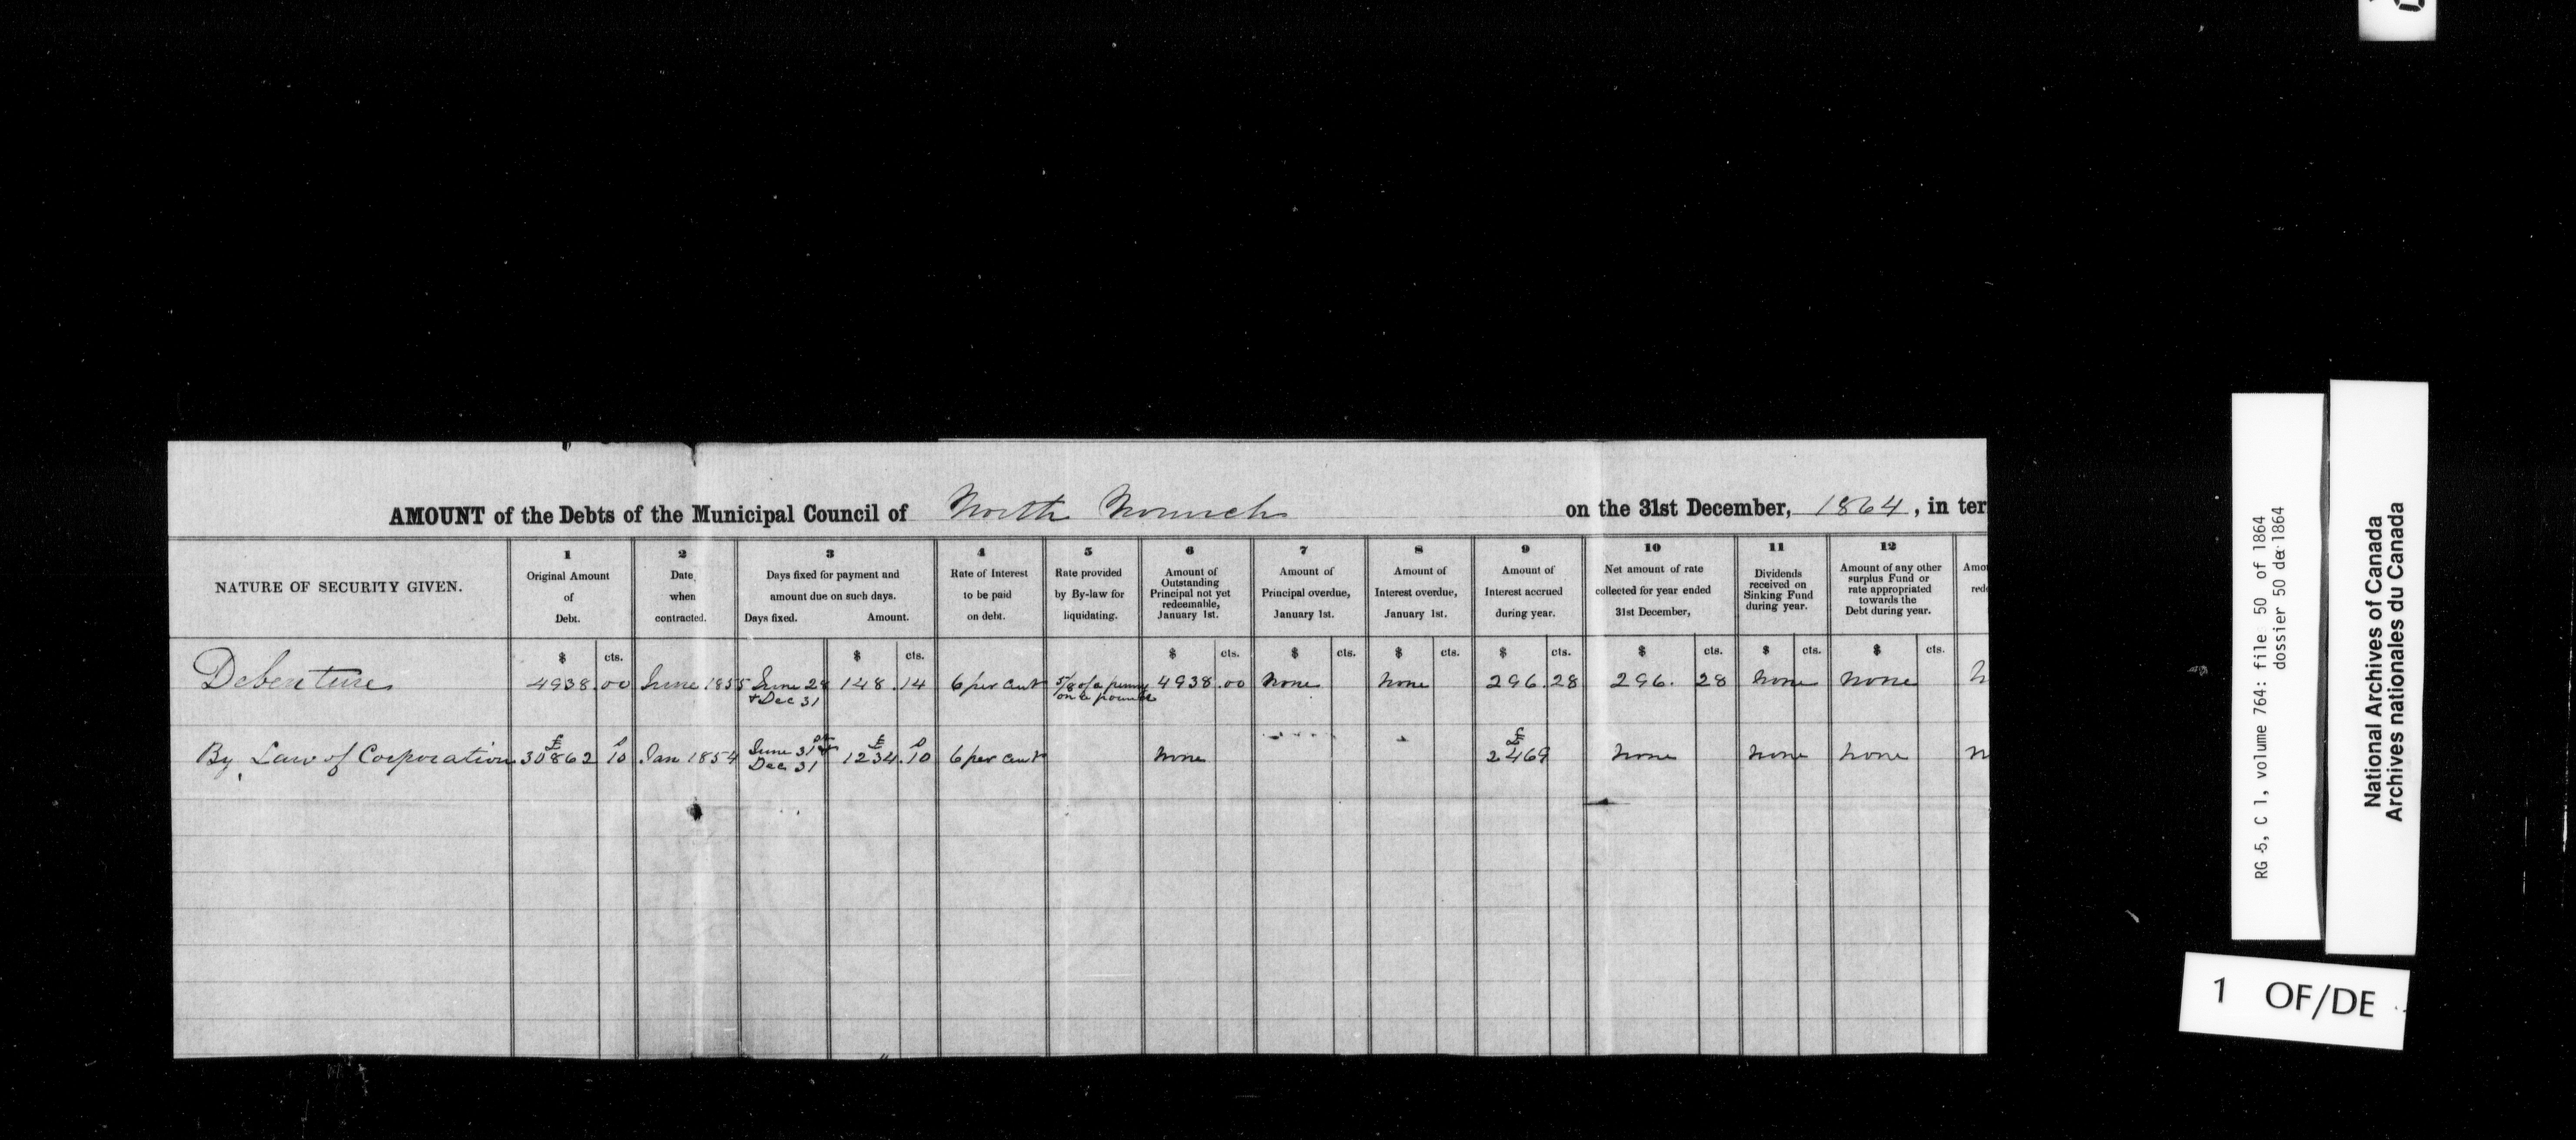 AMOUNT of the Debts of the Municipal Council of North Norwich on the 31st December, 1864, in ter
NATURE OF SECURITY GIVEN.
1
Original Amount
of
Debt.
2
Date
when
contracted.
3
Days fixed for payment and
amount due on such days.
Days fixed. Amount.
4
Rate of Interest
to be paid
on debt.
5
Rate provided
by By-law for
liquidating.
6
Amount of
Outstanding
Principal not yet
redeemable,
January 1st.
7
Amount of
Principal overdue,
January 1st.
8
Amount of
Interest overdue,
January 1st.
9
Amount of
Interest accrued
during year.
10
Net amount of rate
collected for year ended
31st December,
11
Dividends
received on
Sinking Fund
during year.
12
Amount of any other
surplus Fund or
rate appropriated
towards the
Debt during year.
Amou
rede
$ cts. $ cts. $ cts. $ cts. $ cts. $ cts. $ cts. $ cts. $ cts.
Debenture 4938.00 June 1855 June 28 148.14 6 per cent 5/8 of a penny 4938.00 None None 296.28 296. 28 None None N
+ Dec 31 on a pound
By Law of Corporation £30862 10 Jan 1854 June 31 £1234.10 6 per cent None £2469 None None None N
Dec 31
RG 5, C 1, volume 764: file 50 of 1864
dossier 50 de 1864
National Archives of Canada
Archives nationales du Canada
1 OF/DE